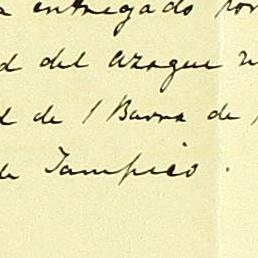 entregado
del azogue
de 1 Barra de
de Tampico.